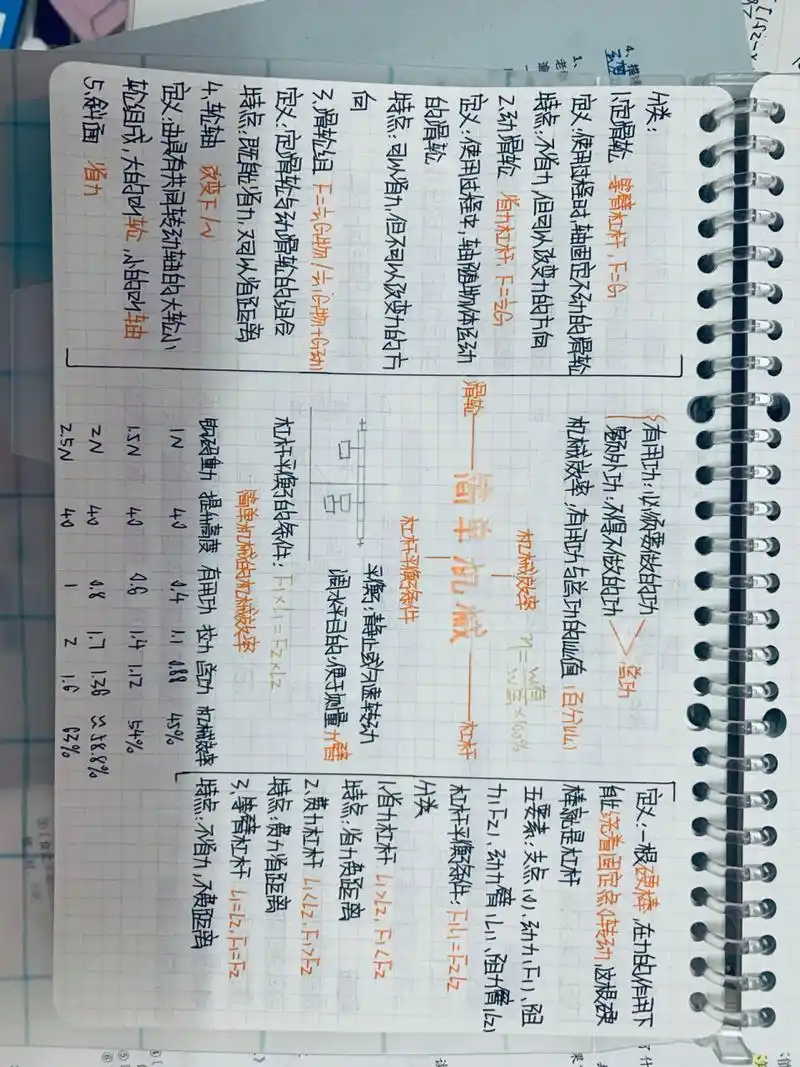 分类:
1.定滑轮 等臂杠杆, F=G
定义:使用过程时,轴固定不动的滑轮
特点:不省力,但可以改变力的方向
2.动滑轮 省力杠杆, F=½G
定义:使用过程中,轴随物体运动
的滑轮
特点:可以省力,但不可以改变力的方
向
3.滑轮组 F=½G物/½(G物+G动)
定义:定滑轮与动滑轮的组合
特点:既能省力,又可以省距离
4.轮轴 改变F/
定义:由具有共同转动轴的大轮小
轮组成,大的叫轮,小的叫轴
5.斜面 省力
有用功:必须要做的功
额外功:不得不做的功
总功
机械效率:有用功与总功的比值(百分比)
机械效率 η=W有/W总×100%
滑轮 简单机械 杠杆
杠杆平衡条件
平衡:静止或匀速转动
调水平目的:便于测量力臂
杠杆平衡的条件:F1×L1=F2×L2
简单机械的机械效率
钩码重力 提升高度 有用功 拉力 总功 机械效率
1N 40 0.4 1.1 0.88 45%
1.5N 40 0.6 1.4 1.12 54%
2N 40 0.8 1.7 1.36 ≈58.8%
2.5N 40 1 2 1.6 63%
定义:一根硬棒,在力的作用下
能绕着固定点转动,这根硬
棒就是杠杆
五要素:支点(O)、动力(F1)、阻
力(F2)、动力臂(L1)、阻力臂(L2)
杠杆平衡条件:F1L1=F2L2
分类
1.省力杠杆 L1>L2, F1<F2
特点:省力费距离
2.费力杠杆 L1<L2, F1>F2
特点:费力省距离
3.等臂杠杆 L1=L2, F1=F2
特点:不省力,不费距离